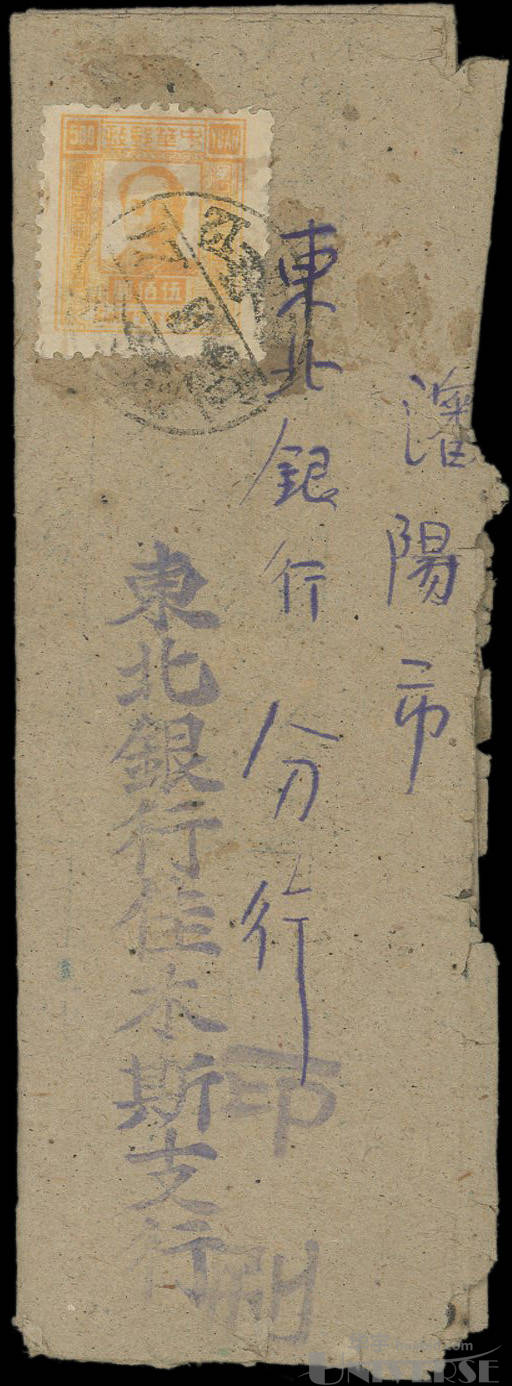 瀋陽市
東北銀行分行
東北銀行佳木斯支行
印刷
500
YUAN
中華郵政
伍佰圓
UNIVERSE